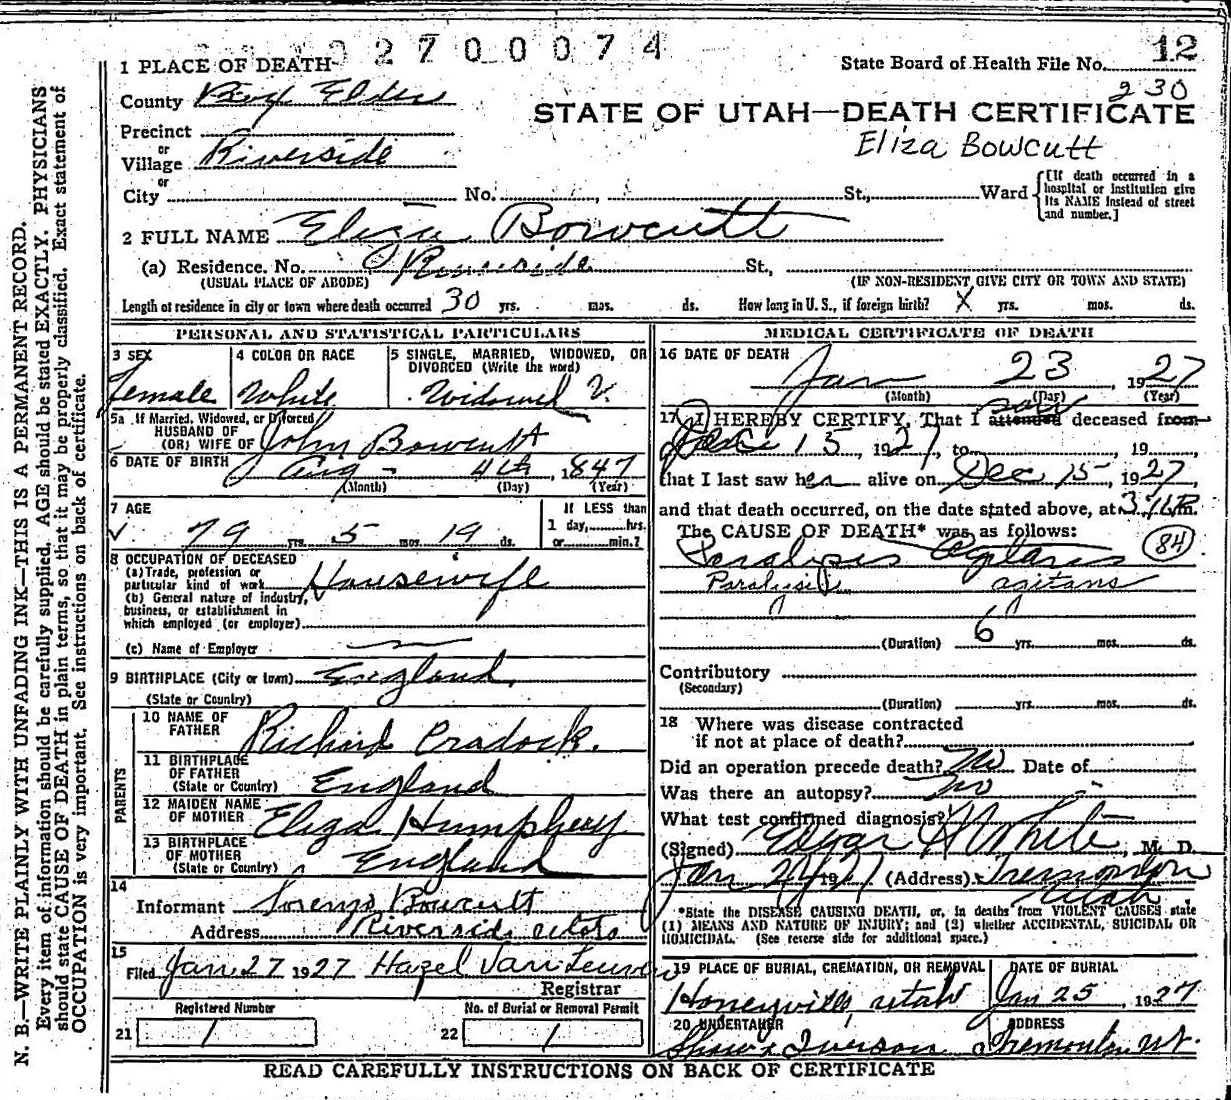 2700074
12
1 PLACE OF DEATH
State Board of Health File No.
230
County Box Elder
STATE OF UTAH—DEATH CERTIFICATE
Precinct
Eliza Bowcutt
or
Village Riverside
or
City No. St., Ward
[If death occurred in a hospital or institution give its NAME instead of street and number.]
2 FULL NAME Eliza Bowcutt
(a) Residence. No. Riverside St.,
(USUAL PLACE OF ABODE) (IF NON-RESIDENT GIVE CITY OR TOWN AND STATE)
Length of residence in city or town where death occurred 30 yrs. mos. ds. How long in U.S., if foreign birth? X yrs. mos. ds.
PERSONAL AND STATISTICAL PARTICULARS
3 SEX
Female
4 COLOR OR RACE
White
5 SINGLE, MARRIED, WIDOWED, OR DIVORCED (Write the word)
Widowed V.
5a If Married, Widowed, or Divorced
HUSBAND OF
(OR) WIFE OF John Bowcutt
6 DATE OF BIRTH Aug - 4th, 1847
(Month) (Day) (Year)
7 AGE
79 yrs. 5 mos. 19 ds.
If LESS than
1 day, hrs.
or min.?
8 OCCUPATION OF DECEASED
(a) Trade, profession or
particular kind of work Housewife
(b) General nature of industry,
business, or establishment in
which employed (or employer)
(c) Name of Employer
9 BIRTHPLACE (City or town) England
(State or Country)
PARENTS
10 NAME OF
FATHER Richard Cradock.
11 BIRTHPLACE
OF FATHER
(State or Country) England
12 MAIDEN NAME
OF MOTHER Eliza Humphery
13 BIRTHPLACE
OF MOTHER
(State or Country) England
14
Informant Bowcutt
Address Riverside Utah
15
Filed Jan. 27 1927 Hazel Van Leuven
Registrar
Registered Number
21 1
No. of Burial or Removal Permit
22 1
MEDICAL CERTIFICATE OF DEATH
16 DATE OF DEATH
Jan 23, 1927
(Month) (Day) (Year)
17 I HEREBY CERTIFY, That I attended saw deceased from
Dec 15, 1927, to , 19
that I last saw her alive on Dec 15, 1927,
and that death occurred, on the date stated above, at m.
The CAUSE OF DEATH* was as follows:
Paralysis Agitans (84)
Paralysis agitans
(Duration) 6 yrs. mos. ds.
Contributory
(Secondary)
(Duration) yrs. mos. ds.
18 Where was disease contracted
if not at place of death?
Did an operation precede death? No Date of
Was there an autopsy? No
What test confirmed diagnosis?
(Signed) Edgar White, M. D.
Jan 24 1927 (Address) Tremonton
Utah
*State the DISEASE CAUSING DEATH, or, in deaths from VIOLENT CAUSES state
(1) MEANS AND NATURE OF INJURY; and (2) whether ACCIDENTAL, SUICIDAL OR
HOMICIDAL. (See reverse side for additional space.)
19 PLACE OF BURIAL, CREMATION, OR REMOVAL
Honeyville, Utah
DATE OF BURIAL
Jan 25, 1927
20 UNDERTAKER
Shaw & Iverson
ADDRESS
Tremonton Ut.
READ CAREFULLY INSTRUCTIONS ON BACK OF CERTIFICATE
N. B.—WRITE PLAINLY WITH UNFADING INK—THIS IS A PERMANENT RECORD.
Every item of information should be carefully supplied. AGE should be stated EXACTLY. PHYSICIANS
should state CAUSE OF DEATH in plain terms, so that it may be properly classified. Exact statement of
OCCUPATION is very important. See instructions on back of certificate.